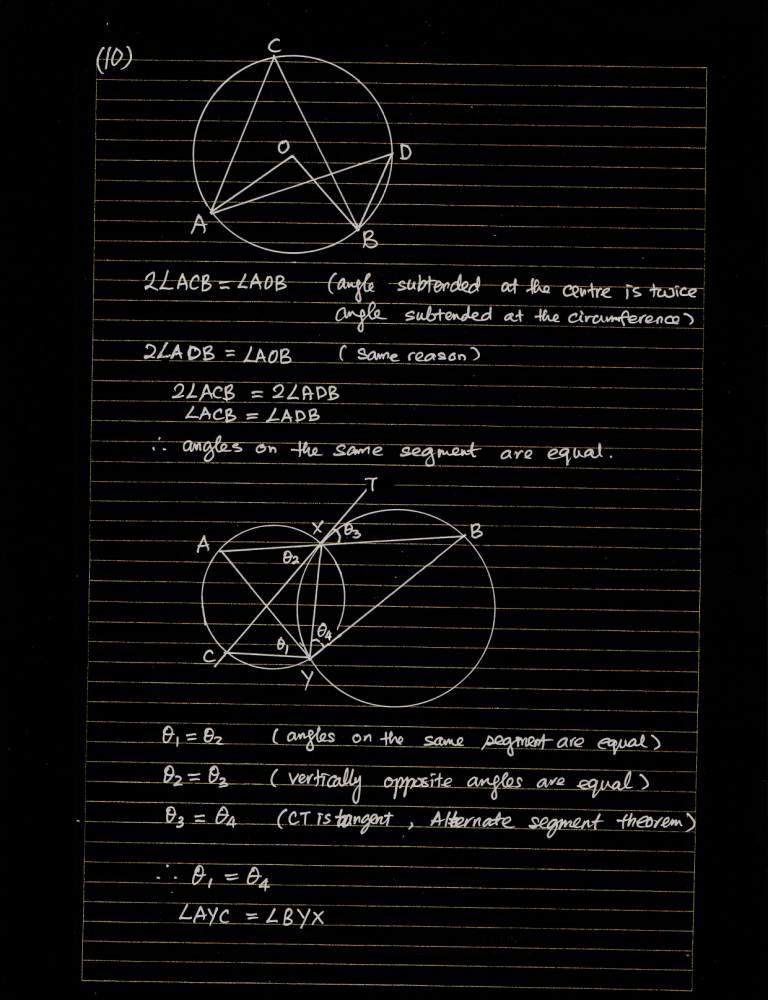 (10)
C
O
D
A
B
2∠ACB = ∠AOB (angle subtended at the centre is twice
angle subtended at the circumference)
2∠ADB = ∠AOB (same reason)
2∠ACB = 2∠ADB
∠ACB = ∠ADB
∴ angles on the same segment are equal.
T
X θ3 B
A
θ2
θ4
C θ1
Y
θ1 = θ2 (angles on the same segment are equal)
θ2 = θ3 (vertically opposite angles are equal)
θ3 = θ4 (CT is tangent, Alternate segment theorem)
∴ θ1 = θ4
∠AYC = ∠BYX